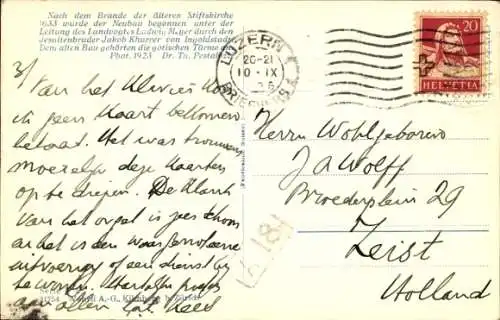 Nach dem Brande der älteren Stiftskirche
1633 wurde der Neubau begonnen unter der
Leitung des Landvogtes Ludwig Meyer durch den
Jesuitenbruder Jakob Khurrer von Ingolstadt.
Dem alten Bau gehörten die gotischen Türme an.
Phot. 1923 Dr. Tu. Pestal
LUZERN 1
20-21
10·IX
BRIEFVERS.
20
HELVETIA
3/
Van het
is geen Kaart bekomen
betaald. Het was trouwens
moeielijk deze Kaarten
op te diepen. De Klank
van het orgel is zeer schoon
en het is een
uitvoering of een dienst bij
te wonen. Hartelijke
aan allen
Herrn Wohlgeboren
J A Wolff
Broederplein 29
Zeist
Holland
181
11254 A.-G., Kilchberg b. Zürich